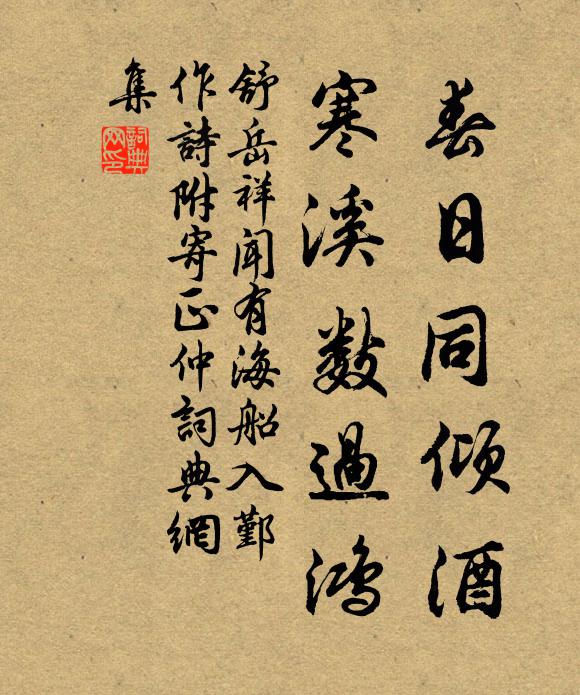 春日同倾酒
寒溪數過鴻
舒岳祥聞有海船入鄞
作詩附寄正仲詞典網
集
詞典
网印